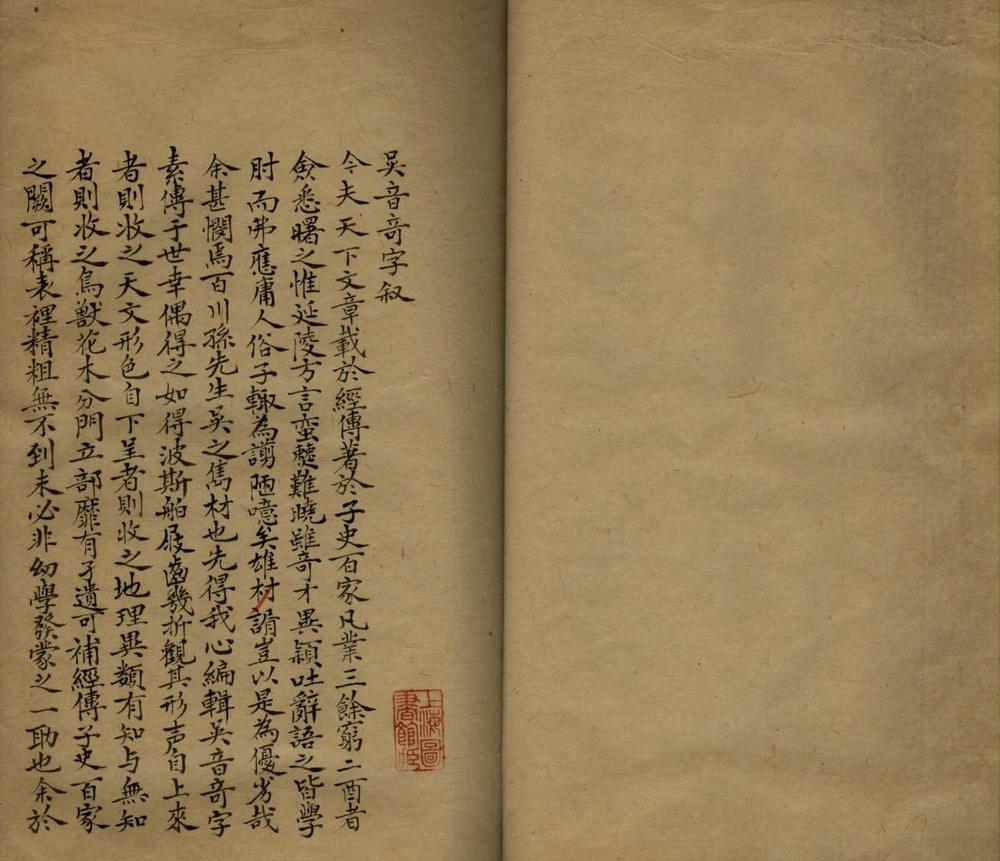 吴音奇字叙
今夫天下文章載於經傳著於子史百家凡業三餘窮二酉者
僉悉曙之惟延陵方言蛮䡾難曉雖奇才異穎吐辭語之皆學
肘而弗應庸人俗子輙為謭陋噫矣雄材謭豈以是為優劣哉
余甚憫焉百川孫先生吴之雋材也先得我心編輯吴音奇字
素傳于世幸偶得之如得波斯舶屐齒幾折觀其形声自上來
者則收之天文形色自下呈者則收之地理異類有知与無知
者則收之鳥獸花木分門立部靡有孑遺可補經傳子史百家
之闕可稱表裡精粗無不到未必非幼學發蒙之一助也余於
上海圖書館藏